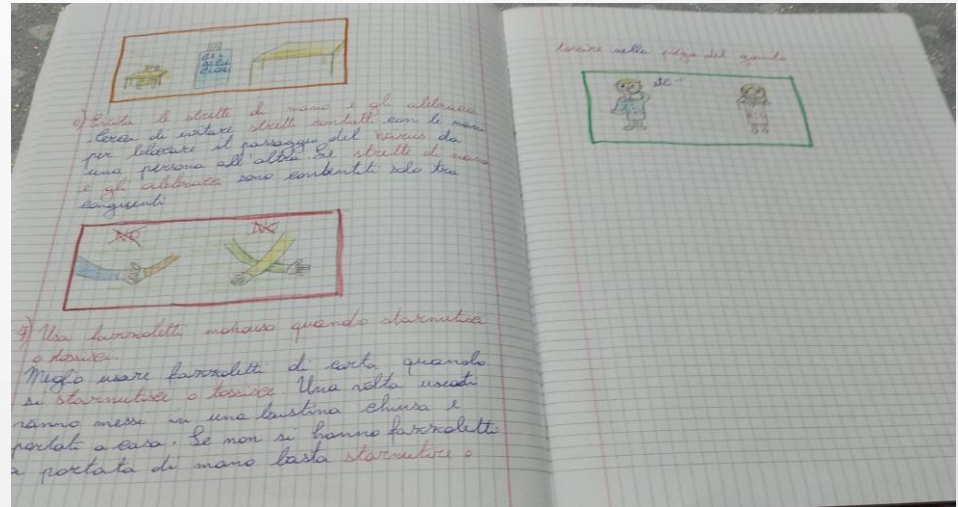 6) Evita le strette di mano e gli abbracci
Cerca di evitare stretti contatti con le mani
per bloccare il passaggio del virus da
una persona all'altra. Le strette di mano
e gli abbracci sono consentiti solo tra
congiunti
NO NO
7) Usa fazzoletti monouso quando starnutisci
o tossisci.
Meglio usare fazzoletti di carta quando
si starnutisce o tossisce Una volta usati
vanno messi in una bustina chiusa e
portati a casa. Se non si hanno fazzoletti
a portata di mano basta starnutire o
tossire nella piega del gomito